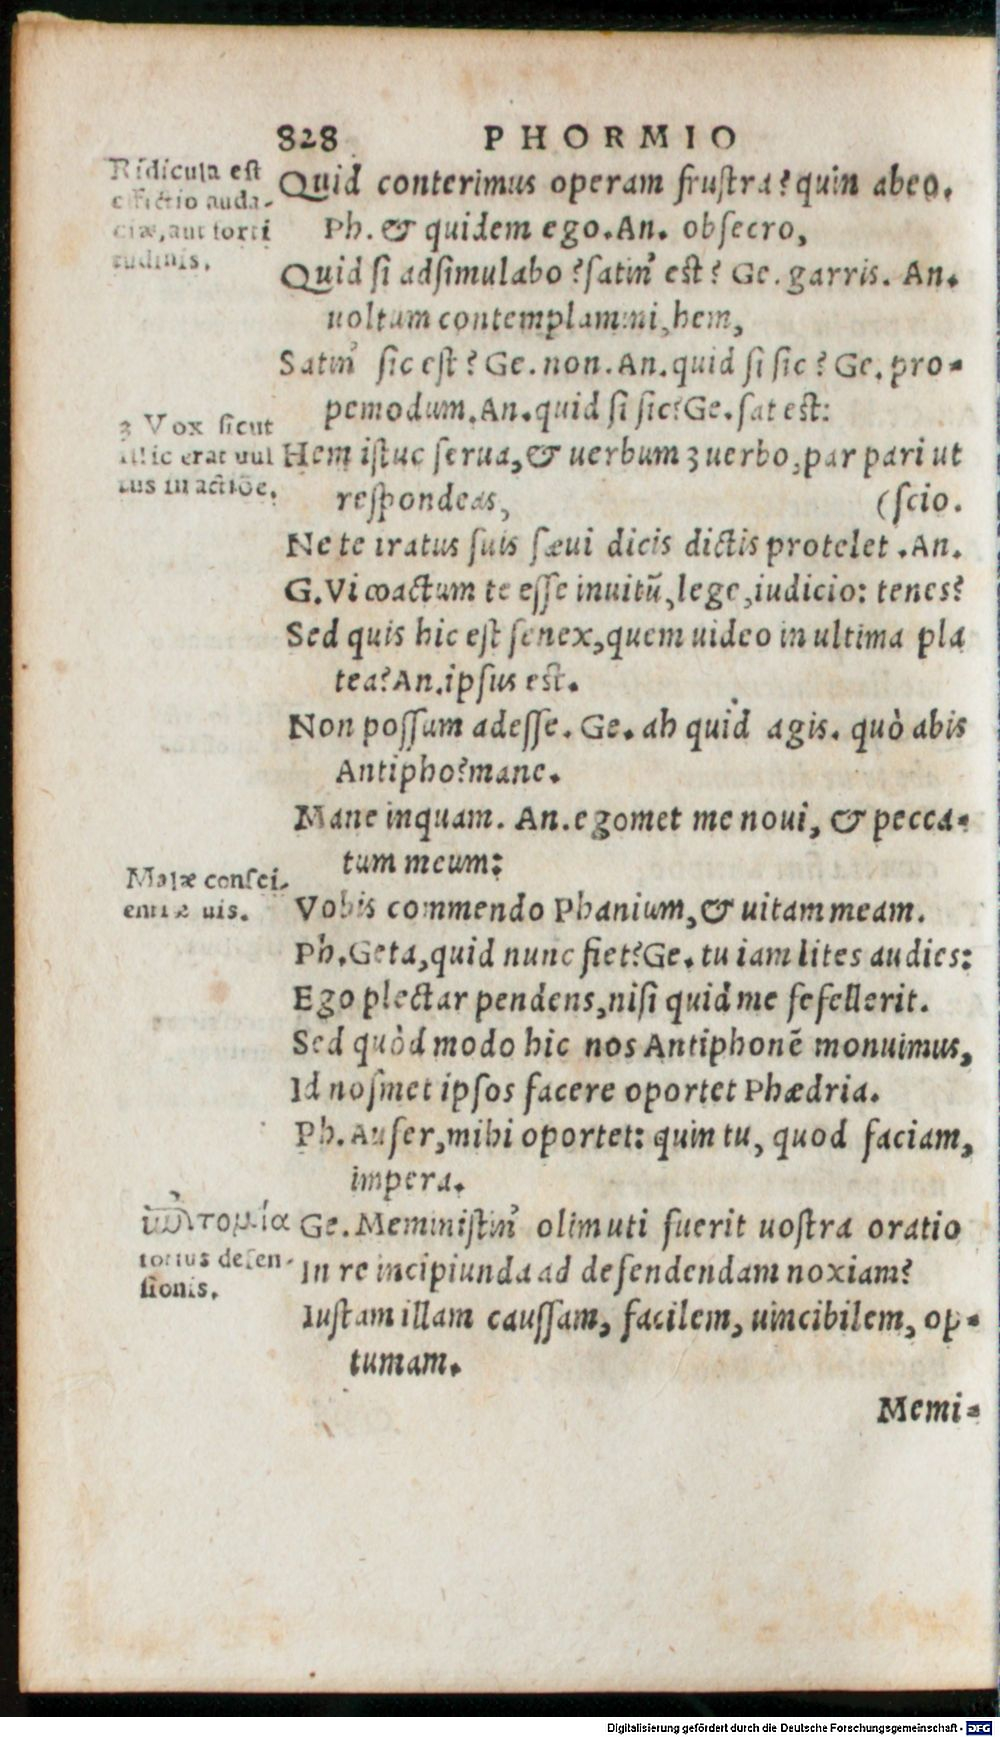 828 PHORMIO
Ridicula est
effictio auda-
ciæ, aut forti
tudinis.
Quid conterimus operam frustra? quin abeo.
Ph. & quidem ego. An. obsecro,
Quid si adsimulabo? satin' est? Ge. garris. An.
uoltum contemplamini, hem,
Satin' sic est? Ge. non. An. quid si sic? Ge. pro-
pemodum. An. quid si sic? Ge. sat est:
3 Vox sicut
illic erat uul
tus in actiõe.
Hem istuc serua, & uerbum 3 uerbo, par pari ut
respondeas, (scio.
Ne te iratus suis sæui dicis dictis protelet. An.
G. Vi coactum te esse inuitũ, lege, iudicio: tenes?
Sed quis hic est senex, quem uideo in ultima pla
tea? An. ipsus est.
Non possum adesse. Ge. ah quid agis. quò abis
Antipho? mane.
Mane inquam. An. egomet me noui, & pecca-
tum meum:
Malæ consci-
entiæ uis.
Vobis commendo Phanium, & uitam meam.
Ph. Geta, quid nunc fiet? Ge. tu iam lites audies:
Ego plectar pendens, nisi quid me fefellerit.
Sed quòd modo hic nos Antiphonẽ monuimus,
Id nosmet ipsos facere oportet Phædria.
Ph. Aufer, mihi oportet: quin tu, quod faciam,
impera.
totius defen-
sionis.
Ge. Meministin' olim uti fuerit uostra oratio
In re incipiunda ad defendendam noxiam?
Iustam illam caussam, facilem, uincibilem, op-
tumam.
Memi-
Digitalisierung gefördert durch die Deutsche Forschungsgemeinschaft - DFG